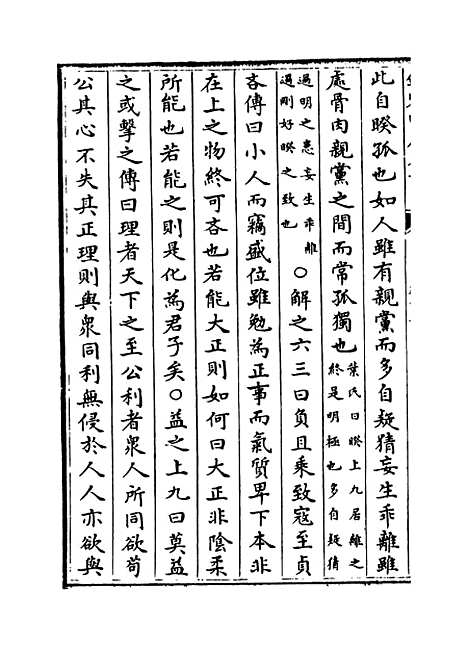 此自睽孤也如人雖有親黨而多自疑猜妄生乖離雖
處骨肉親黨之間而常孤獨也葉氏曰睽上九居離之終是明極也多自疑猜
過明之患妄生乖離過剛好睽之致也○解之六三曰負且乘致寇至貞
吝傳曰小人而竊盛位雖勉為正事而氣質卑下本非
在上之物終可吝也若能大正則如何曰大正非陰柔
所能也若能之則是化為君子矣○益之上九曰莫益
之或擊之傳曰理者天下之至公利者衆人所同欲茍
公其心不失其正理則與衆同利無侵於人人亦欲與